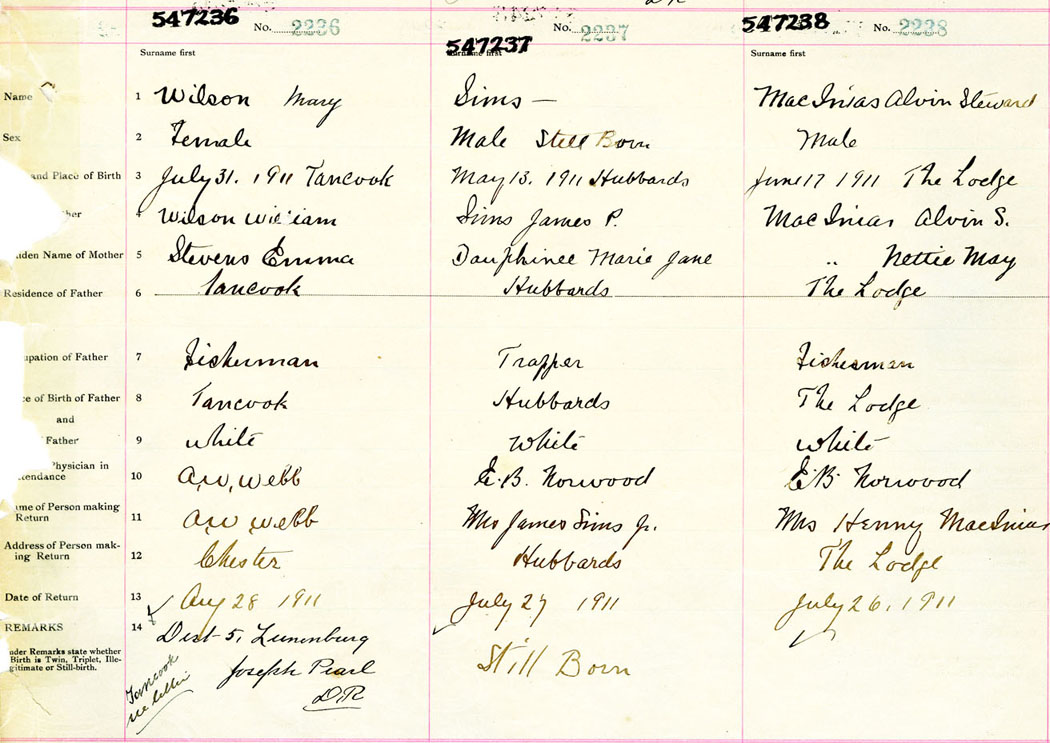 547236 No. 2236
547237 No. 2237
547238 No. 2238
Surname first
Surname first
Surname first
Name 1 Wilson Mary Sims — MacInias Alvin Steward
Sex 2 Female Male Still Born Male
and Place of Birth 3 July 31. 1911 Tancook May 13. 1911 Hubbards June 17 1911 The Lodge
her 4 Wilson William Sims James P. MacInias Alvin S.
iden Name of Mother 5 Stevens Emma Dauphinee Marie Jane " Nettie May
Residence of Father 6 Tancook Hubbards The Lodge
upation of Father 7 Fisherman Trapper Fisherman
ce of Birth of Father 8 Tancook Hubbards The Lodge
and
Father 9 white White white
Physician in
ttendance 10 A.W. Webb E.B. Norwood E.B. Norwood
me of Person making
Return 11 A W Webb Mrs James Sims Jr. Mrs Henny MacInias
Address of Person mak-
ing Return 12 Chester Hubbards The Lodge
Date of Return 13 Aug 28 1911 July 27 1911 July 26, 1911
REMARKS 14 Dist 5, Lunenburg
nder Remarks state whether
Birth is Twin, Triplet, Ille-
gitimate or Still-birth.
Joseph Pearl
D.R
Still Born
Tancook